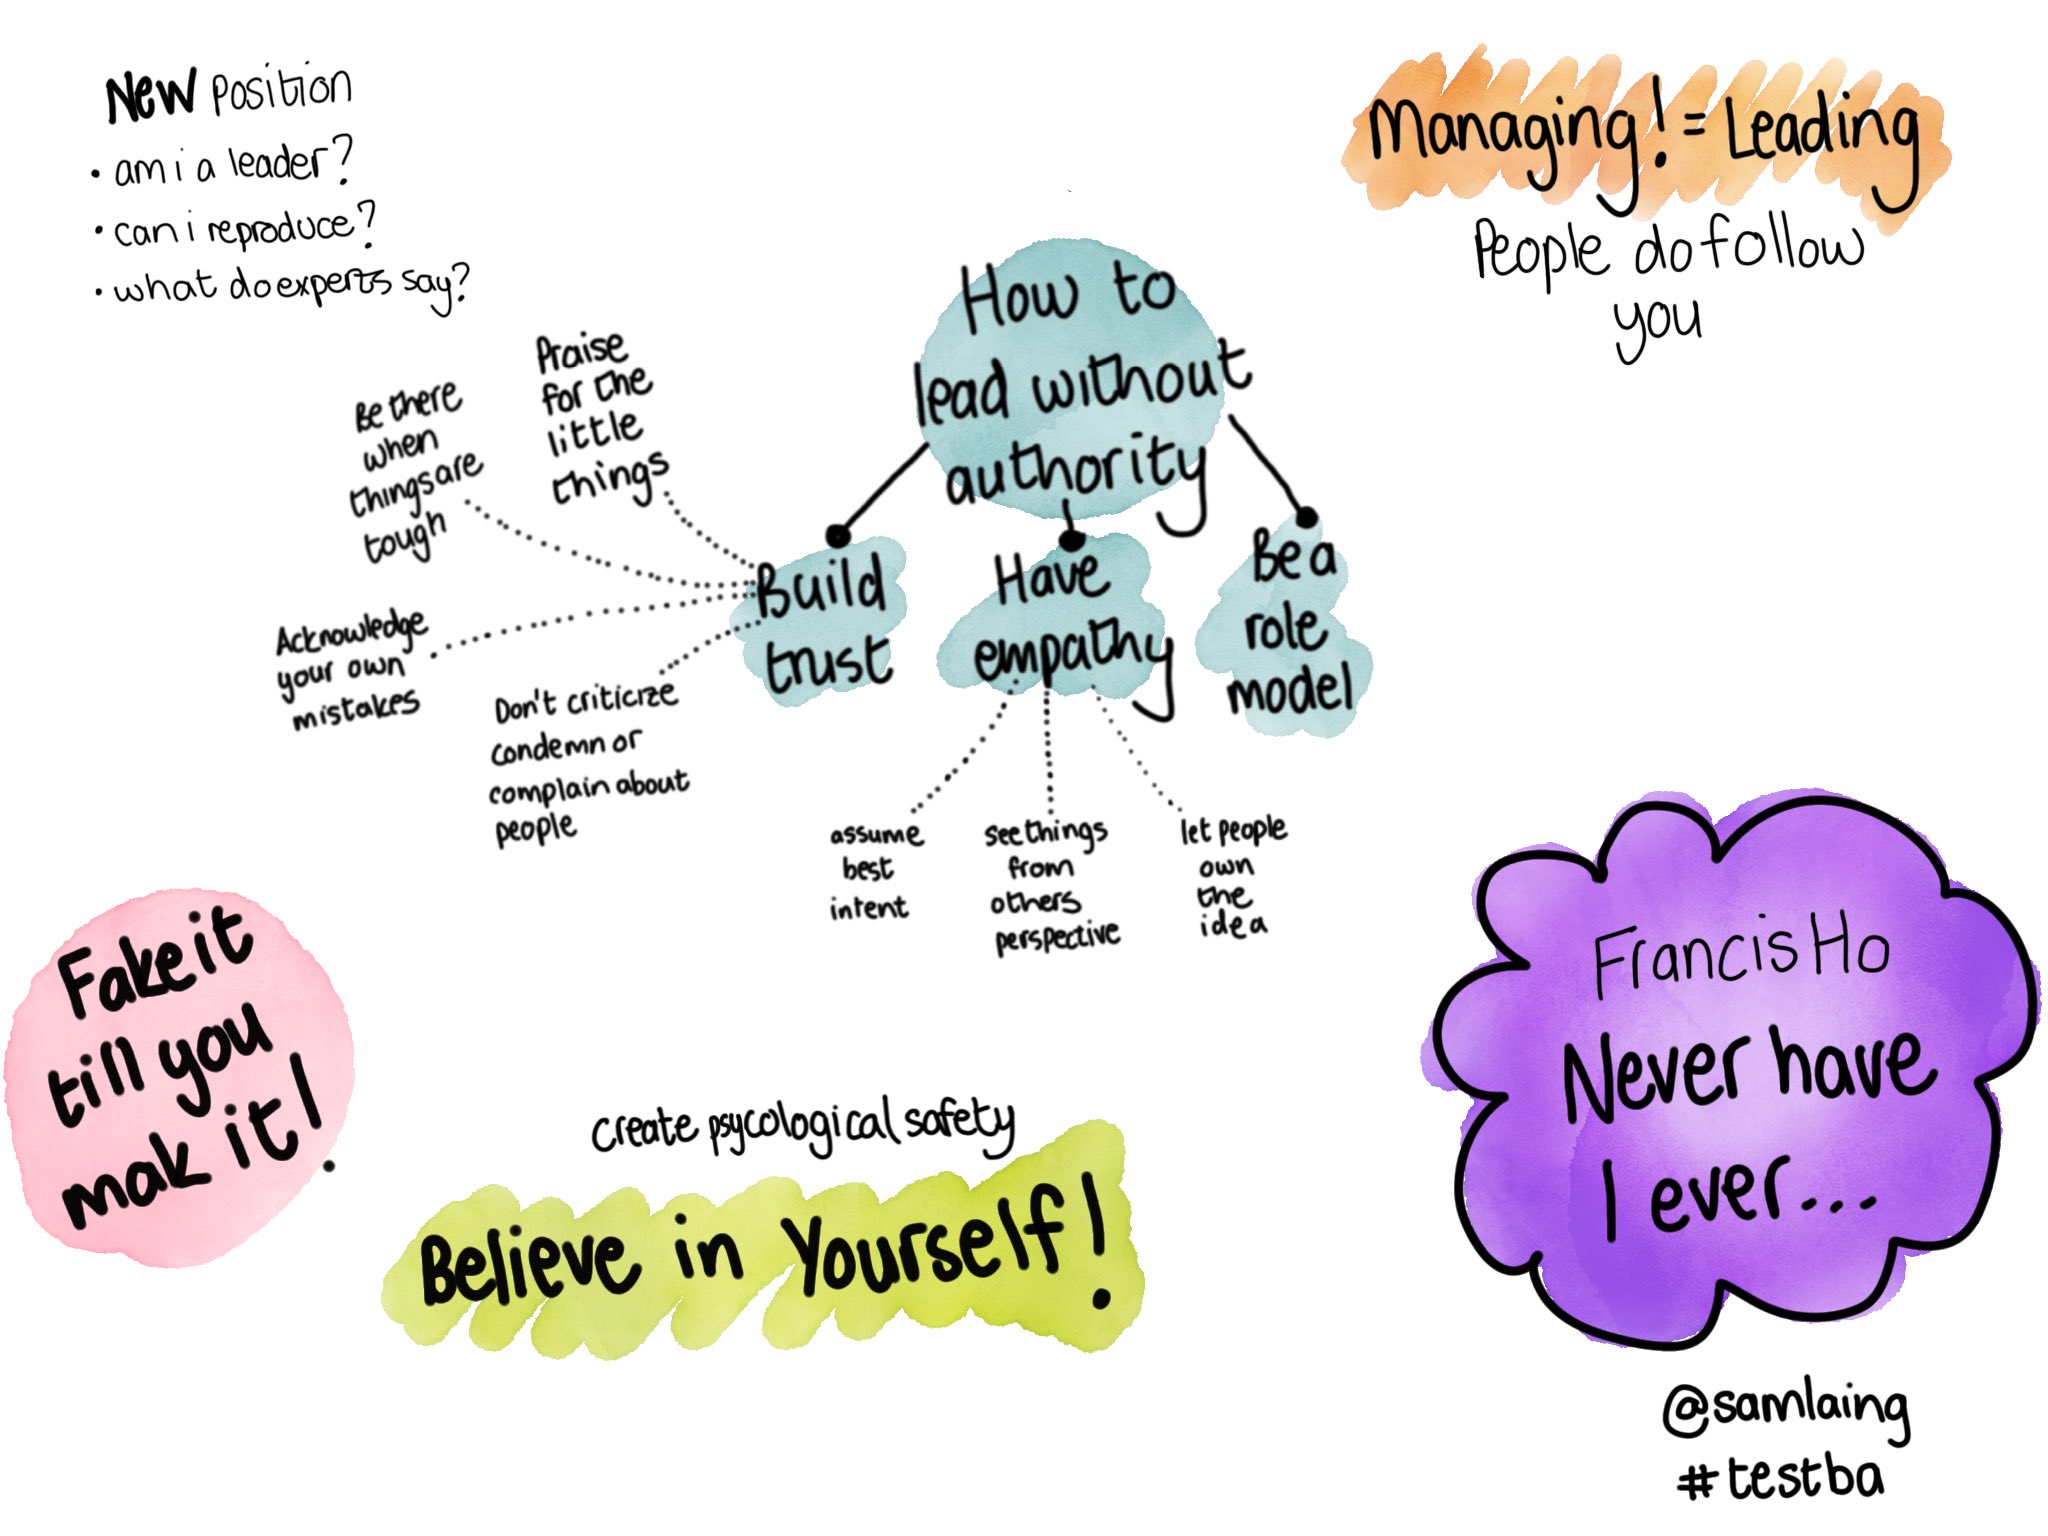 New Position
• am i a leader?
• can i reproduce?
• what do experts say?
Managing! = Leading
People do follow
you
How to
lead without
authority
Praise
for the
little
things
Be there
when
things are
tough
Acknowledge
your own
mistakes
Don't criticize
condemn or
complain about
people
Build
trust
Have
empathy
Be a
role
model
assume
best
intent
see things
from
others
perspective
let people
own
the
idea
Fake it
till you
mak it!
create psycological safety
Believe in Yourself!
Francis Ho
Never have
I ever...
@samlaing
#testba